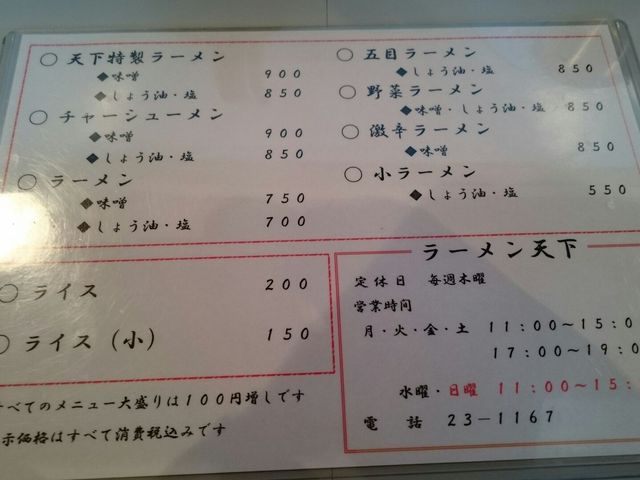 ○ 天下特製ラーメン
◆味噌 900
◆しょう油・塩 850
○ チャーシューメン
◆味噌 900
◆しょう油・塩 850
○ ラーメン
◆味噌 750
◆しょう油・塩 700
○ 五目ラーメン
◆しょう油・塩 850
○ 野菜ラーメン
◆味噌・しょう油・塩 850
○ 激辛ラーメン
◆味噌 850
○ 小ラーメン
◆しょう油・塩 550
○ ライス 200
○ ライス（小） 150
べてのメニュー大盛りは100円増しです
示価格はすべて消費税込みです
ラーメン天下
定休日 毎週木曜
営業時間
月・火・金・土 11:00～15:0
17:00～19:0
水曜・日曜 11:00～15:
電 話 23－1167